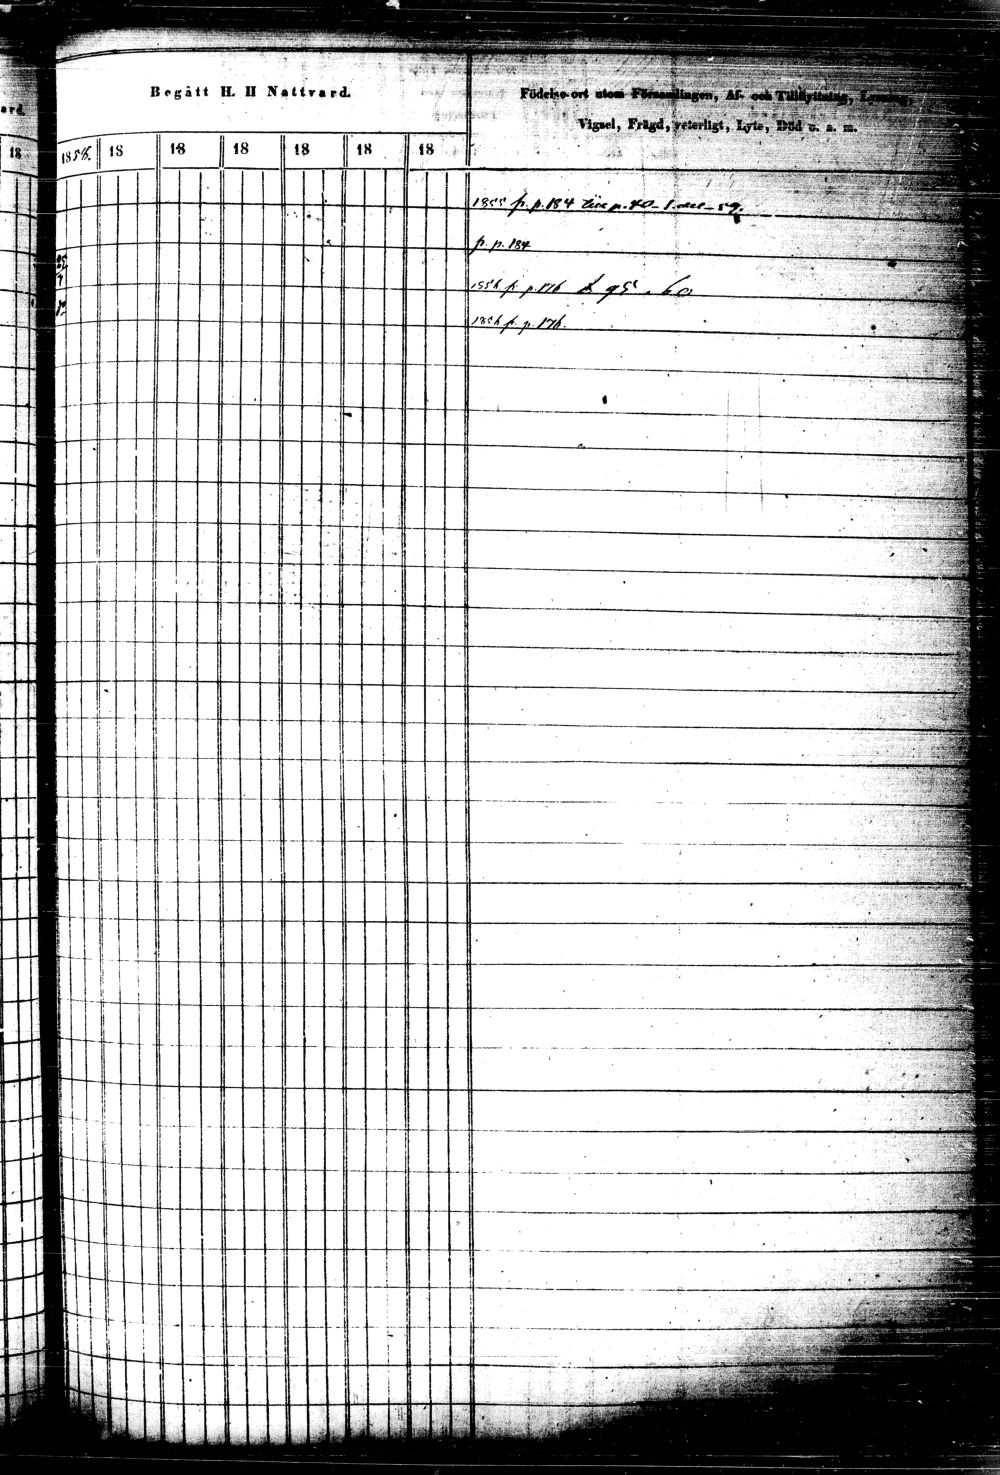 ard.
18
Begått H. H Nattvard.
Födelse-ort utom Församlingen, Af- och Tillflyttning, Lysning,
Vigsel, Frägd, veterligt, Lyte, Död o. s. m.
1858. 18 18 18 18 18 18
1855 fr. p. 184 till p. 40 1. dec. 59.
fr. p. 184
1856 fr. p. 176
1856 fr. p. 176.